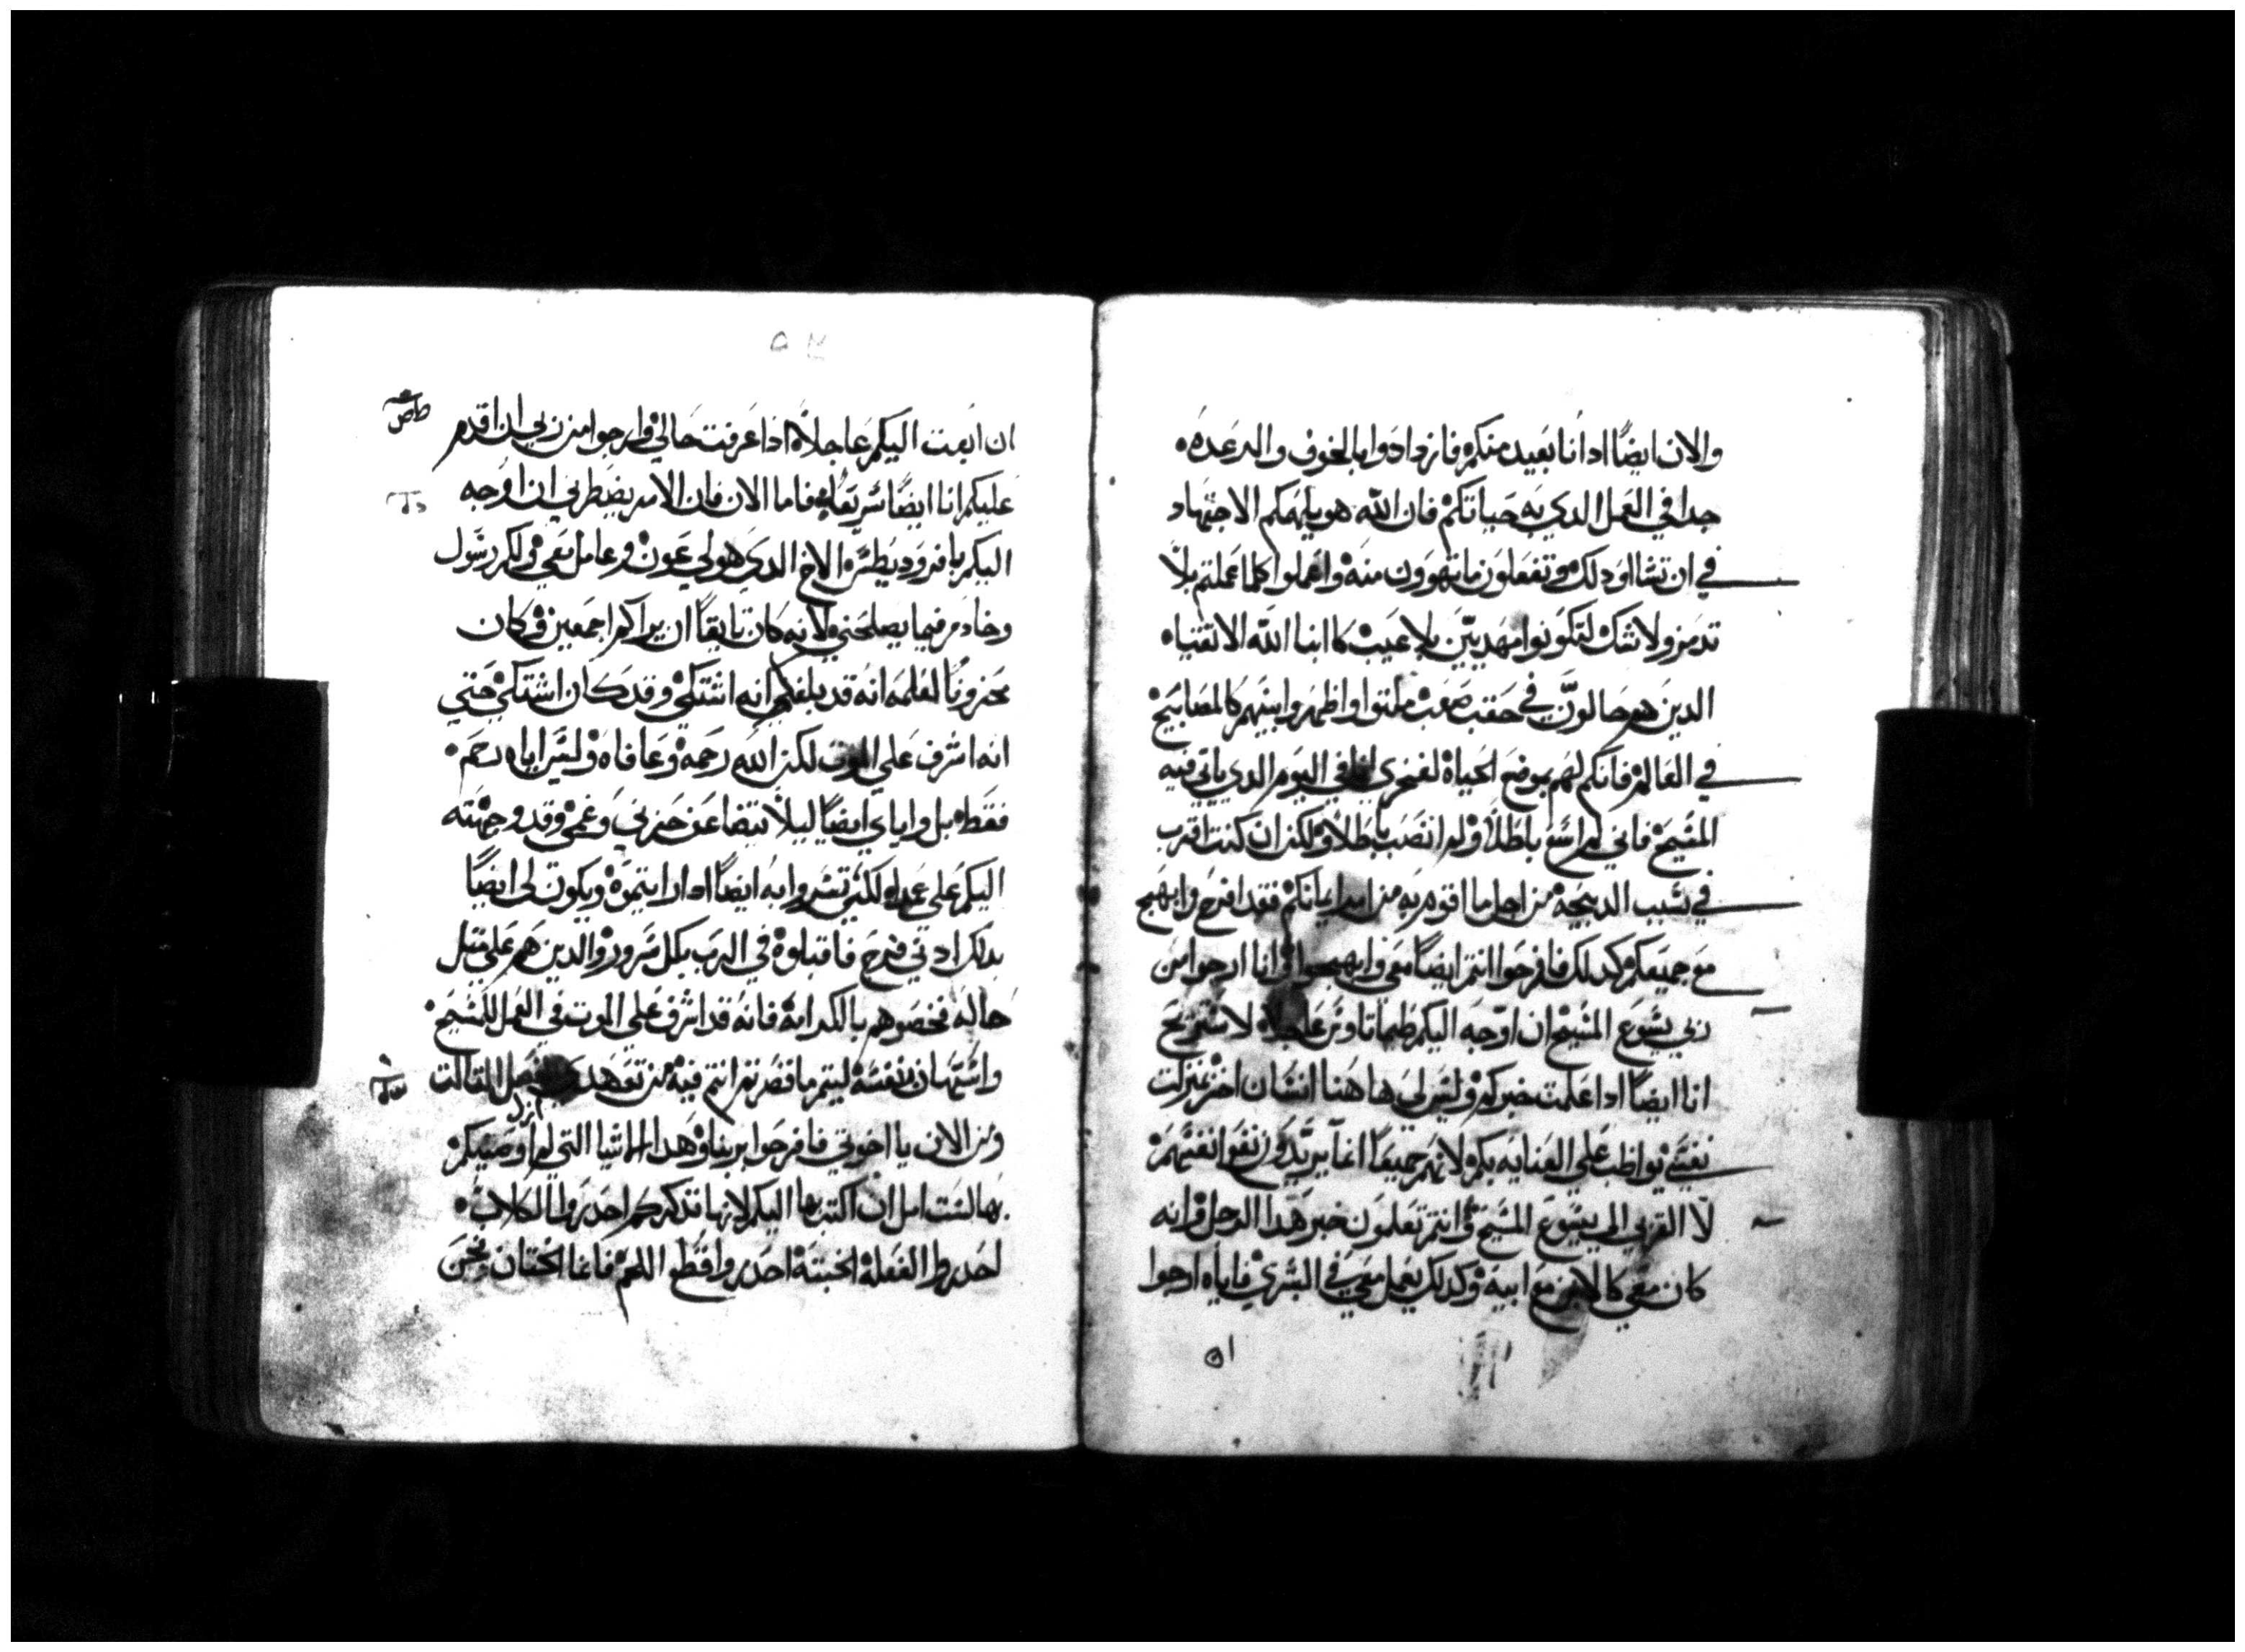 والان ايضًا اد انا بعيد منكم فازدادوا بالخوف والرعده
جدا في العمل الدي به حياتكم فان الله هو يلهمكم الاجتهاد
في ان تشااو دلك وتفعلون ما تهوون منه واعملوا كلما عملتم بلا
تدمر ولا شك لتكونوا مهديين بلا عيب كابنا الله الاتقياه
الدين هم حالون في حقب صعب ملتوا واظهروا بينهم كالمصابيح
في العالم فانكم لهم بموضع الحياة لفخري انا في اليوم الدي ياتي فيه
المسيح فاني لم اسع باطلاً ولم انصب باطلاً ولكن ان كنت اقرب
في سبب الدبيحه من اجل ما اقوم به من امر ايمانكم فقد افرح وابتهج
مع جميعكم كدلك فافرحوا انتم ايضاً معي وابتهجوا وانا ارجوا من
ربي يسوع المسيح ان اوجه اليكم طيماتاوس عاجلاً لاستريح
انا ايضاً ادا علمت خبركم وليس لي هاهنا انسان اخر بمنزلت
نفسي يواظب علي العنايه بكم لانهم جميعاً انما يريدون نفع انفسهم
لا القربي الي يسوع المسيح وانتم تعلمون خبر هدا الرجل وانه
كان معي كالابن مع ابيه وكدلك يعمل معي في البشري فاياه ارجوا
٥١
٥٢
ان ابعت اليكم عاجلاً ادا عرفت حالي وارجوا من ربي ان اقدم
عليكم انا ايضًا سريعًا فاما الان فان الامر يضطرني ان اوجه
اليكم بافروديطس الاخ الدي هو لي عون وعامل معي ولكم رسول
وخادم فيما يصلحني لانه كان تايقاً ان يراكم اجمعين وكان
محزونًا لعلمه انه قد بلغكم انه اشتكي وقد كان اشتكي حتي
انه اشرف علي الموت لكن الله رحمه وعافاه وليس اياه رحم
فقط بل واياي ايضًا ليلا يتضاعف حزني وغمي وقد وجهته
اليكم علي عمد لكي تسروا به ايضاً ادا رايتموه ويكون لي ايضاً
بدلك ادني فرح فاقبلوه في الرب بكل سرور والدين هم علي مثل
حاله فخصوهم بالكرامة فانه قد اشرف علي الموت في العمل للمسيح
واستهان بنفسه ليتم ما قصرتم انتم فيه من تعهد
ومن الان يا اخوتي فافرحوا بربنا وهدا الاشيا التي لم ازل اوصيكم
بها لست امل ان اكتب بها اليكم لانها تدكركم احدروا الكلاب
احدروا الفعلة الخبيثة احدروا قطع اللحم فانما الختان نحن